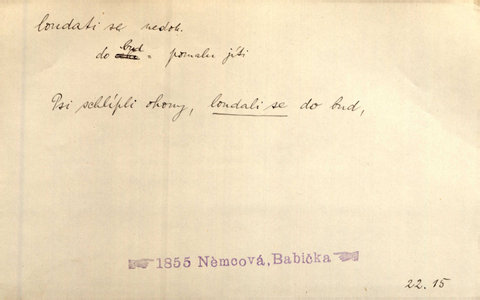 loudati se nedok.
do bud = pomalu jíti
Psi schlípli ohony, loudali se do bud,
1855 Němcová, Babička
22.15